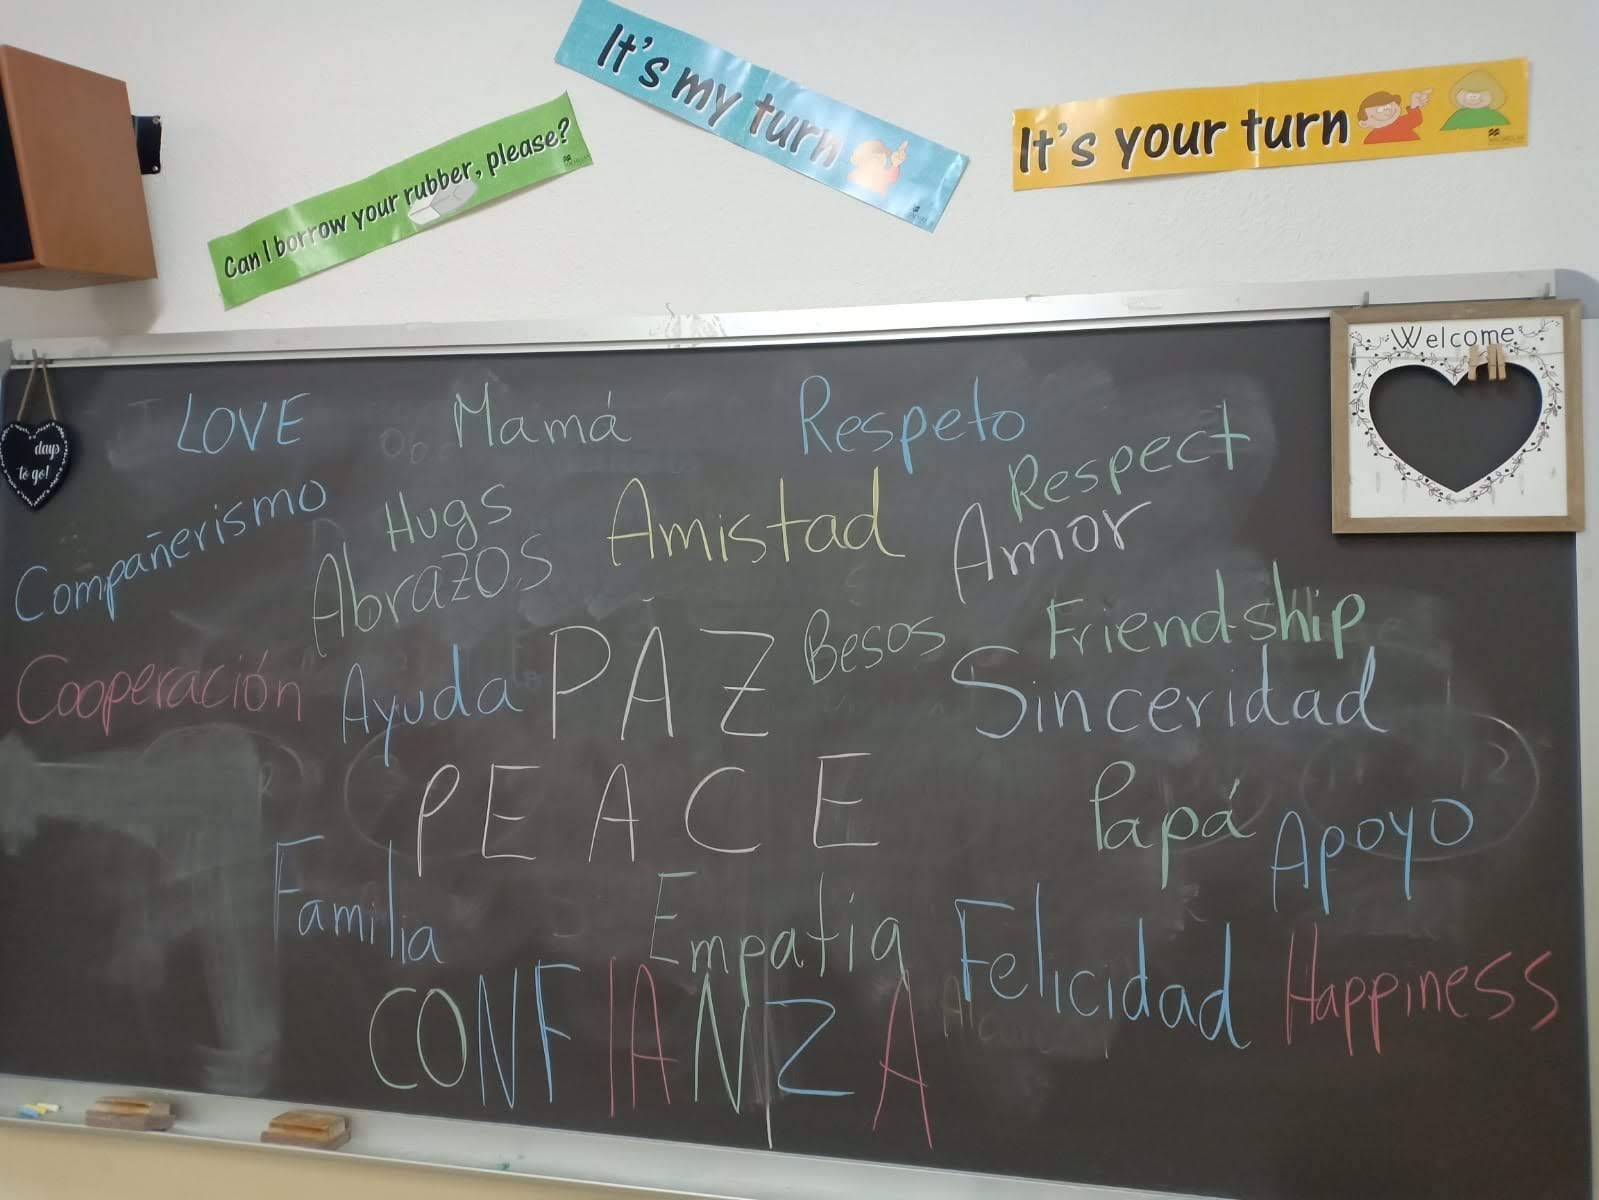 It's my turn
It's your turn
Can I borrow your rubber, please?
Welcome
days
to go!
LOVE
Mamá
Respeto
Respect
Compañerismo
Hugs
Amistad
Amor
Abrazos
Friendship
Besos
Cooperación
Ayuda
PAZ
Sinceridad
PEACE
Papá
Apoyo
Familia
Empatia
Felicidad
Happiness
CONFIANZA